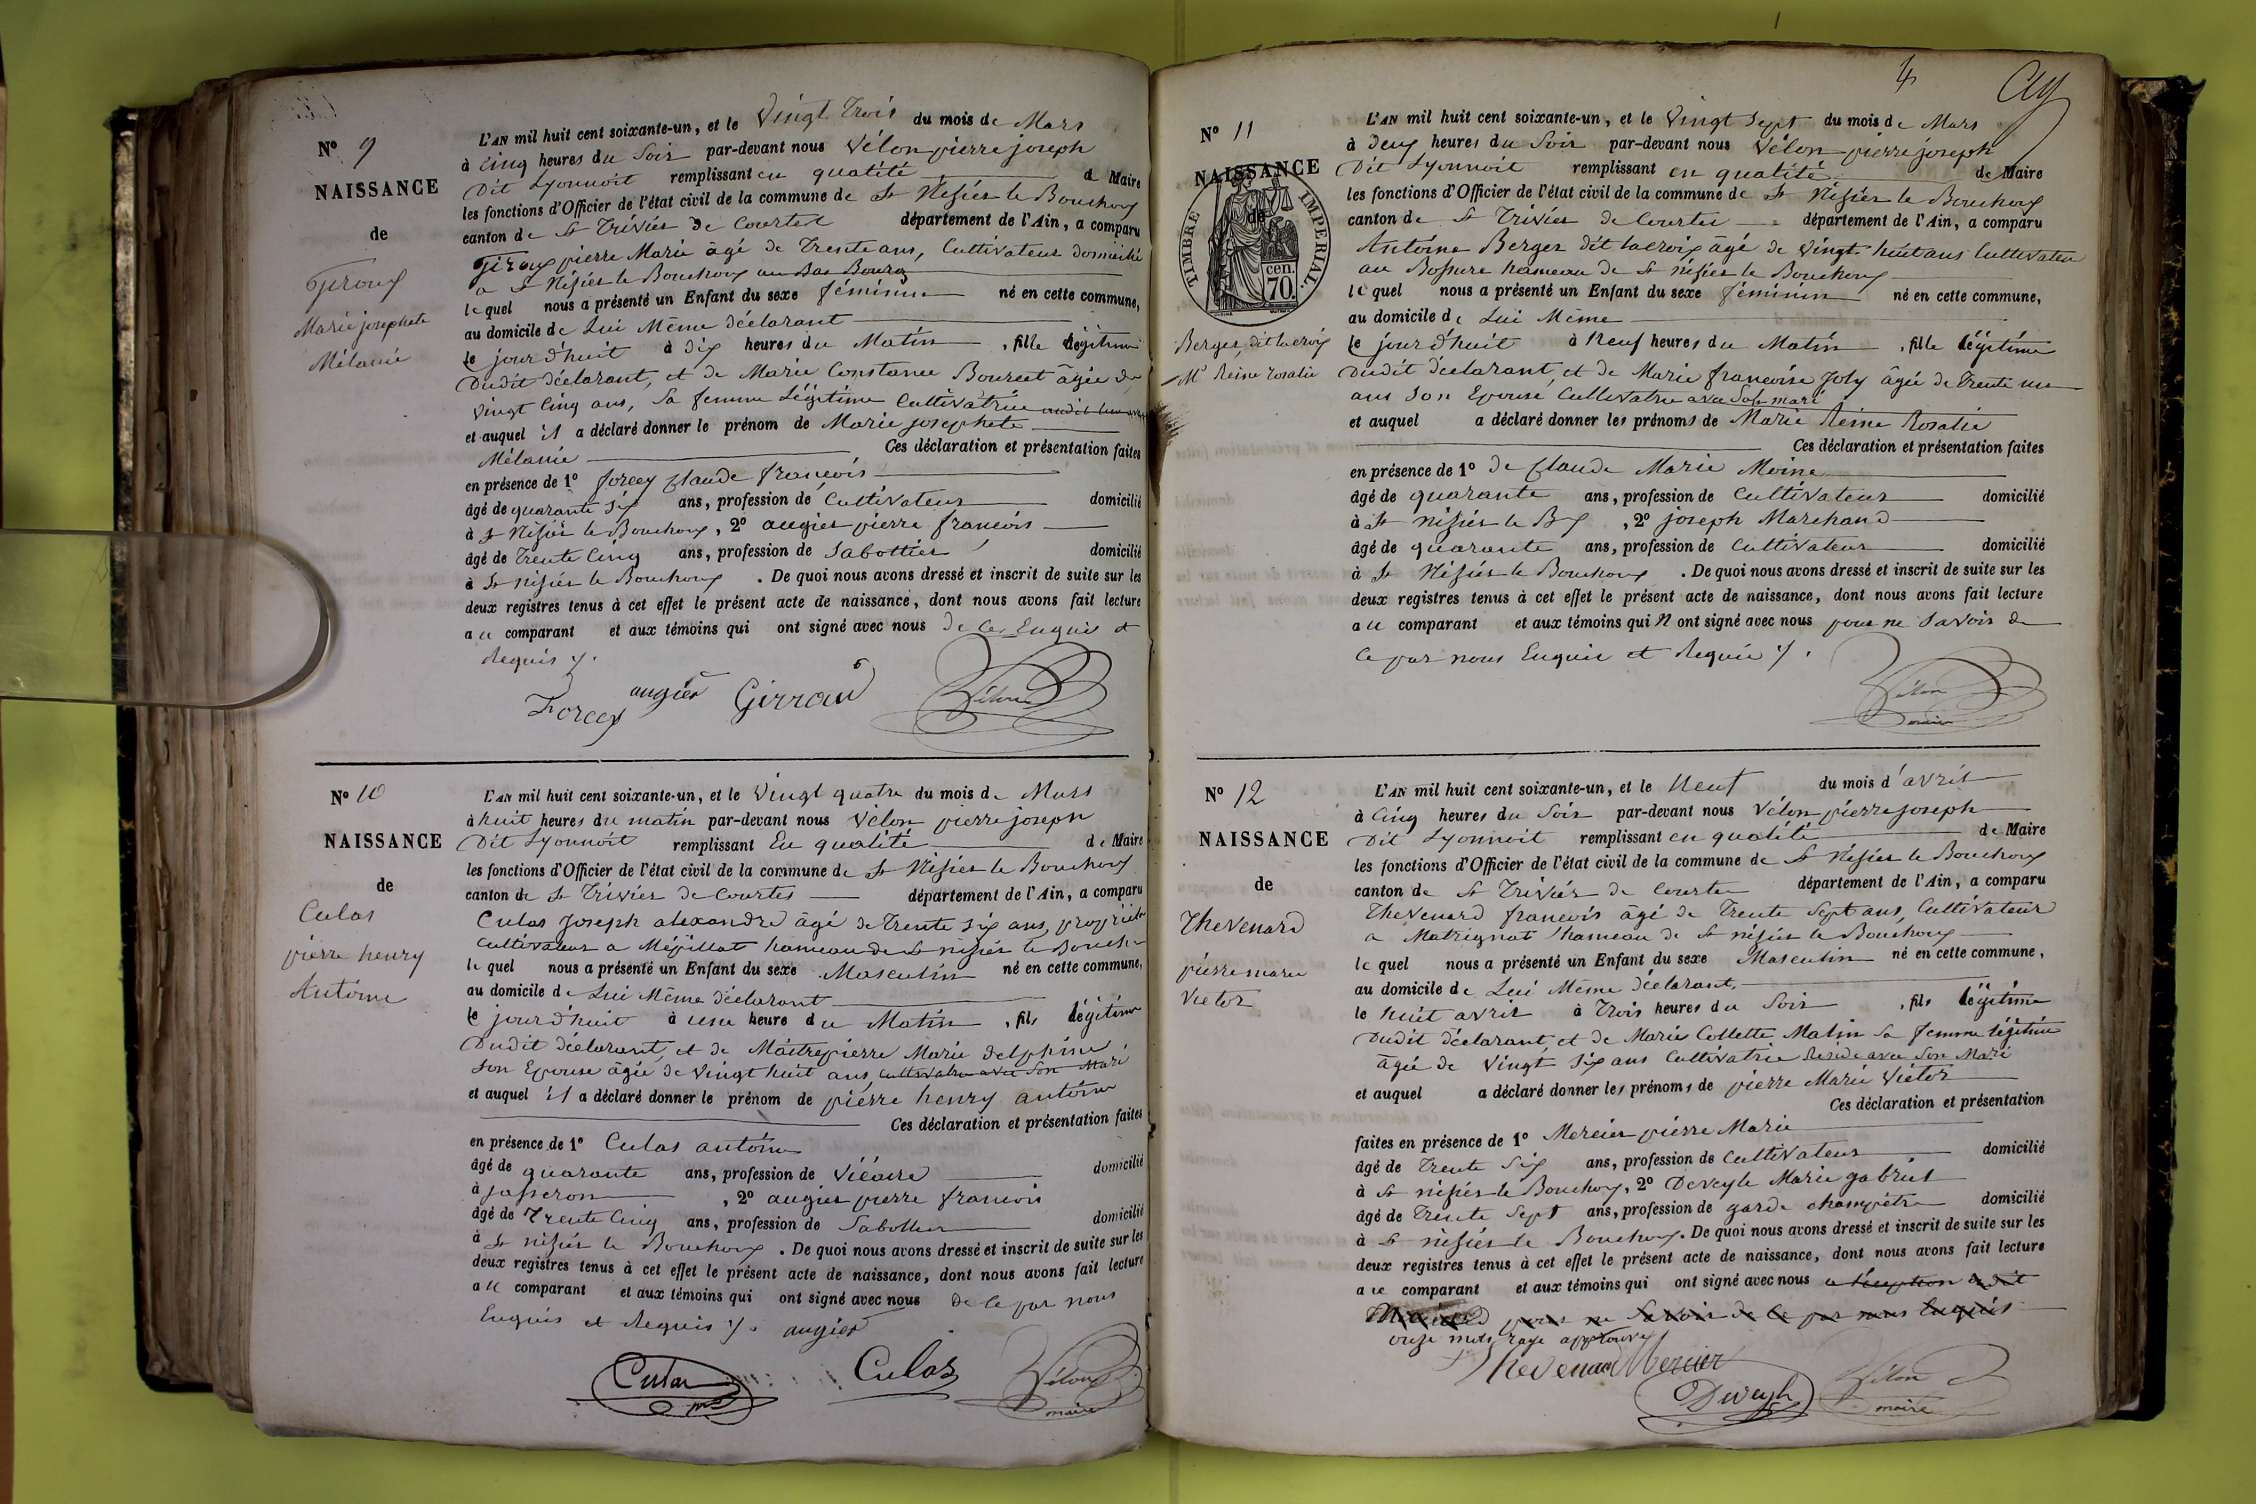 N° 9
NAISSANCE
de
Giroux
Marie josephete
Mélanie
L'AN mil huit cent soixante-un, et le Vingt Trois du mois de Mars
à Cinq heures du Soir par-devant nous Vélon pierre joseph
Dit Lyonnoit remplissant en qualité de Maire
les fonctions d'Officier de l'état civil de la commune de St Nisiés le Bouchoux
canton de St Triviés de Courtes département de l'Ain, a comparu
Giroux pierre Marie âgé de Trente ans, Cultivateur domicilié
a St Nisiés le Bouchoux au Bas Bourg
lequel nous a présenté un Enfant du sexe féminin né en cette commune,
au domicile de Lui Même déclarant
le jour d'huit à dix heures du Matin, fille légitime
Dudit déclarant, et de Marie Constance Bourcet âgée de
Vingt Cinq ans, Sa femme Légitime Cultivatrice
et auquel il a déclaré donner le prénom de Marie josephete
Mélanie Ces déclaration et présentation faites
en présence de 1° forcey Claude françois
âgé de quarante six ans, profession de Cultivateur domicilié
à St Nisiés le Bouchoux, 2° augier pierre françois
âgé de Trente Cinq ans, profession de Sabottier domicilié
à St nisiés le Bouchoux. De quoi nous avons dressé et inscrit de suite sur les
deux registres tenus à cet effet le présent acte de naissance, dont nous avons fait lecture
au comparant et aux témoins qui ont signé avec nous de Ce, Enquis et
Requis ./.
Forcey augier Girroud Vélon
N° 10
NAISSANCE
de
Culas
pierre henry
Antoine
L'AN mil huit cent soixante-un, et le Vingt quatre du mois de Mars
à huit heures du matin par-devant nous Vélon pierre joseph
Dit Lyonnoit remplissant En qualité de Maire
les fonctions d'Officier de l'état civil de la commune de St Nisiés le Bouchoux
canton de St Triviés de Courtes département de l'Ain, a comparu
Culas Joseph alexandre âgé de Trente six ans, propriét
Cultivateur a Mépillat hameau de St nisiés le Bouch
lequel nous a présenté un Enfant du sexe Masculin né en cette commune,
au domicile de Lui Même déclarant
le jour d'huit à une heure du Matin, fils légitime
Dudit déclarant, et de Maitrepierre Marie delphine
Son Epouse âgée de Vingt huit ans, cultivatrice avec Son Mari
et auquel il a déclaré donner le prénom de pierre henry antoine
Ces déclaration et présentation faites
en présence de 1° Culas antoine
âgé de quarante ans, profession de Vicaire domicilié
à Jasseron, 2° augier pierre françois
âgé de Trente Cinq ans, profession de Sabottier domicilié
à St nisiés le Bouchoux. De quoi nous avons dressé et inscrit de suite sur les
deux registres tenus à cet effet le présent acte de naissance, dont nous avons fait lecture
au comparant et aux témoins qui ont signé avec nous de Ce par nous
Enquis et Requis ./. augier
Culas Culas Vélon
maire
4
N° 11
NAISSANCE
de
TIMBRE IMPÉRIAL
70 cen.
Berger, dit lacroix
Me Reine rosalie
L'AN mil huit cent soixante-un, et le Vingt Sept du mois de Mars
à Deux heures du Soir par-devant nous Vélon pierre joseph
Dit Lyonnoit remplissant en qualité de Maire
les fonctions d'Officier de l'état civil de la commune de St Nisiés le Bouchoux
canton de St Triviés de Courtes département de l'Ain, a comparu
Antoine Berger dit lacroix âgé de Vingt huit ans Cultivateur
au Bossure hameau de St nisiés le Bouchoux
lequel nous a présenté un Enfant du sexe féminin né en cette commune,
au domicile de Lui Même
le jour d'huit à Neuf heures du Matin, fille légitime
Dudit déclarant, et de Marie françoise Joly âgée de Trente un
ans Son Epouse, Cultivatrice avec Son mari
et auquel a déclaré donner les prénoms de Marie Reine Rosalie
Ces déclaration et présentation faites
en présence de 1° de Claude Marie Moine
âgé de quarante ans, profession de Cultivateur domicilié
à St nisiés le Bx, 2° joseph Marchand
âgé de quarante ans, profession de Cultivateur domicilié
à St Nisiés le Bouchoux. De quoi nous avons dressé et inscrit de suite sur les
deux registres tenus à cet effet le présent acte de naissance, dont nous avons fait lecture
au comparant et aux témoins qui N ont signé avec nous pour ne Savoir de
Ce par nous Enquis et Requis ./.
Vélon
maire
N° 12
NAISSANCE
de
Thevenard
pierre marie
Victor
L'AN mil huit cent soixante-un, et le Neuf du mois d'avril
à Cinq heures du Soir par-devant nous Vélon pierre joseph
Dit Lyonnoit remplissant en qualité de Maire
les fonctions d'Officier de l'état civil de la commune de St Nisiés le Bouchoux
canton de St Triviés de Courtes département de l'Ain, a comparu
Thevenard françois âgé de Trente Sept ans, Cultivateur
a Matrignat hameau de St nisiés le Bouchoux
lequel nous a présenté un Enfant du sexe Masculin né en cette commune,
au domicile de Lui Même déclarant,
le huit avril à Trois heures du Soir, fils légitime
Dudit déclarant, et de Marie Collette Matin sa femme légitime
âgée de Vingt Six ans Cultivatrice Réside avec Son Mari
et auquel a déclaré donner les prénoms de pierre Marie Victor
Ces déclaration et présentation
faites en présence de 1° Mercier pierre Marie
âgé de Trente Six ans, profession de Cultivateur domicilié
à St nisiés le Bouchoux, 2° Deveyle Marie gabriel
âgé de Trente Sept ans, profession de garde champêtre domicilié
à St nisiés le Bouchoux. De quoi nous avons dressé et inscrit de suite sur les
deux registres tenus à cet effet le présent acte de naissance, dont nous avons fait lecture
au comparant et aux témoins qui ont signé avec nous a l'éception dudit
pour ne Savoir de Ce par nous Enquis
onze mots rayé approuvé
Thevenard Mercier
Deveyle Vélon
maire